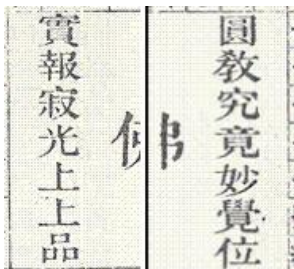 圓教究竟妙覺位
佛
實報寂光上上品